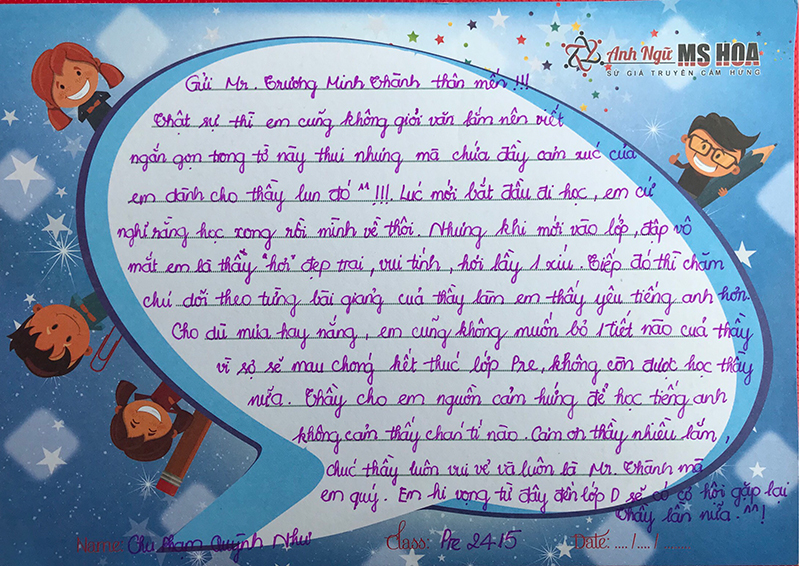 Anh Ngữ MS HOA
SỨ GIẢ TRUYỀN CẢM HỨNG
Gửi Mr. Trương Minh Thành thân mến !!!
Thật sự thì em cũng không giỏi văn lắm nên viết
ngắn gọn trong tờ này thui nhưng mà chứa đầy cảm xúc của
em dành cho thầy lun đó ^^ !!!. Lúc mới bắt đầu đi học, em cứ
nghĩ rằng học xong rồi mình về thôi. Nhưng khi mới vào lớp, đập vô
mắt em là thầy "hơi" đẹp trai, vui tính, hơi lầy 1 xíu. Tiếp đó thì chăm
chú dõi theo từng bài giảng của thầy làm em thấy yêu tiếng anh hơn.
Cho dù mưa hay nắng, em cũng không muốn bỏ 1 tiết nào của thầy
vì sợ sẽ mau chóng kết thúc lớp Pre, không còn được học thầy
nữa. Thầy cho em nguồn cảm hứng để học tiếng anh
không cảm thấy chán tí nào. Cảm ơn thầy nhiều lắm,
chúc thầy luôn vui vẻ và luôn là Mr. Thành mà
em quý. Em hi vọng từ đây đến lớp D sẽ có cơ hội gặp lại
thầy lần nữa. ^^!
Name: Chu Phạm Quỳnh Như Class: Pre 2415 Date: .... / .... / ........